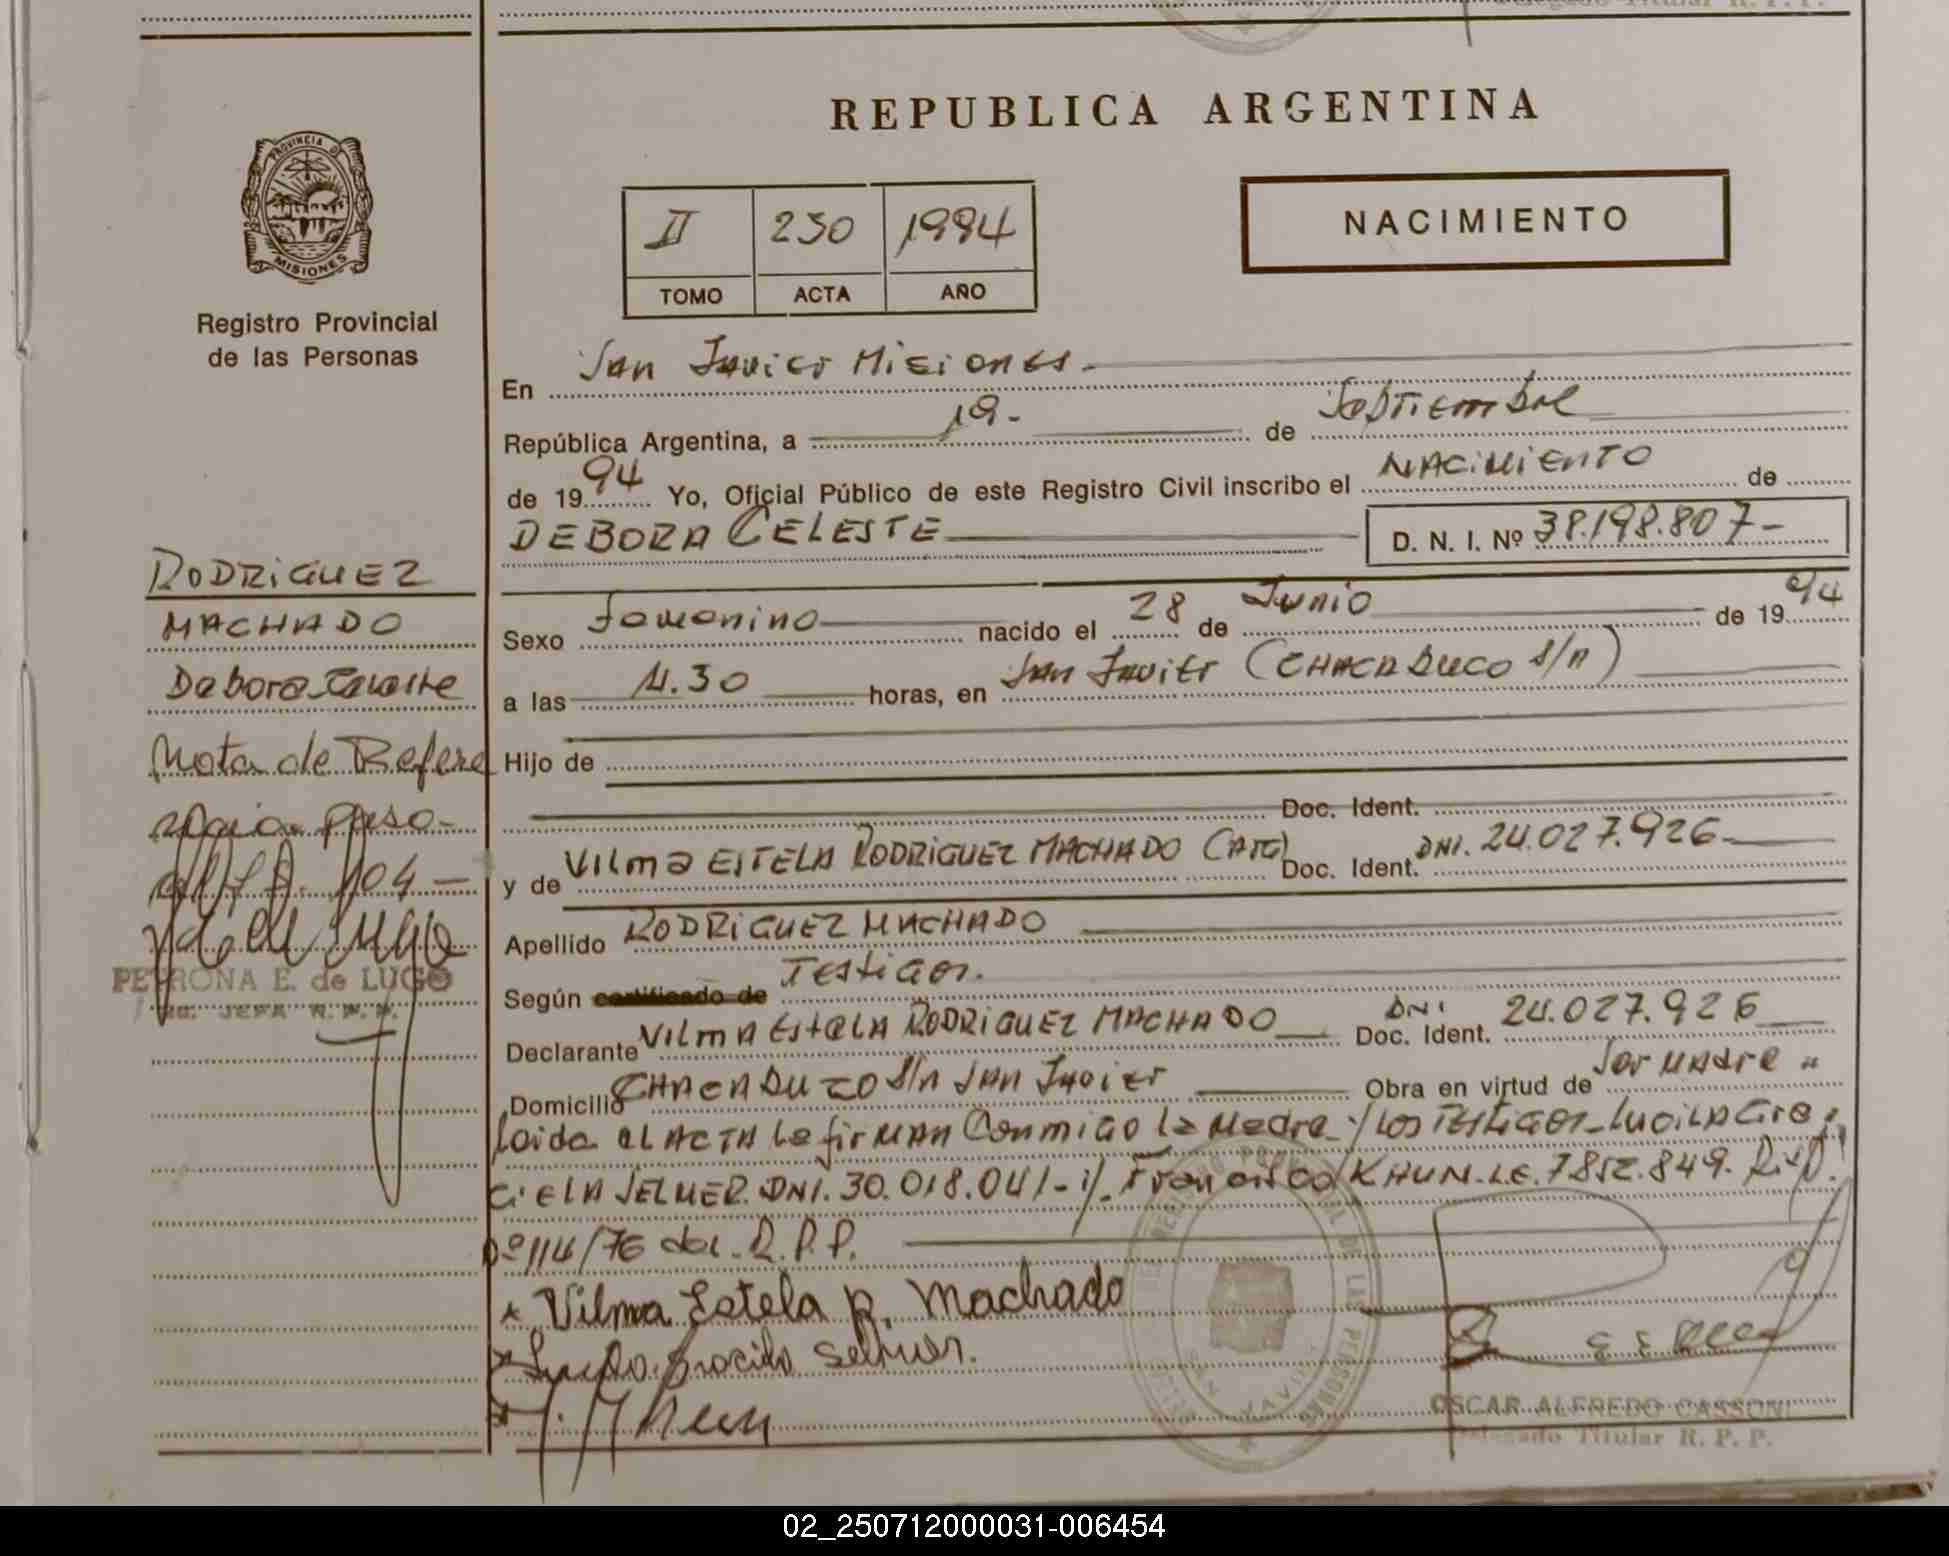 REPUBLICA ARGENTINA
PROVINCIA DE
MISIONES
Registro Provincial
de las Personas
II 230 1994
TOMO ACTA AÑO
NACIMIENTO
En San Javier Misiones
República Argentina, a 19 de Septiembre
de 1994 Yo, Oficial Público de este Registro Civil inscribo el NACIMIENTO de
DEBORA CELESTE D. N. I. Nº 38.198.807
Sexo Femenino nacido el 28 de Junio de 1994
a las 11.30 horas, en San Javier (CHACABUCO S/n)
Hijo de
Doc. Ident.
y de Vilma ESTELA RODRIGUEZ MACHADO (ARG) Doc. Ident. DNI. 24.027.926
Apellido RODRIGUEZ MACHADO
Según certificado de Testigos.
Declarante Vilma Estela RODRIGUEZ MACHADO Doc. Ident. DNI 24.027.926
Domicilio CHACABUCO S/n SAN Javier Obra en virtud de Ser Madre
Leida el ACTA la firman Conmigo la Madre y Los Testigos Lucila Gra
ciela SELMER. DNI. 30.018.041 y Francisco KHUN. L.E. 7852.849.
Nº 114/76 del R.P.P.
Vilma Estela R. Machado
OSCAR ALFREDO CASSONI
Delegado Titular R. P. P.
RODRIGUEZ
MACHADO
Debora Celeste
Nota de Refere
PETRONA E. de LUGO
02_250712000031-006454